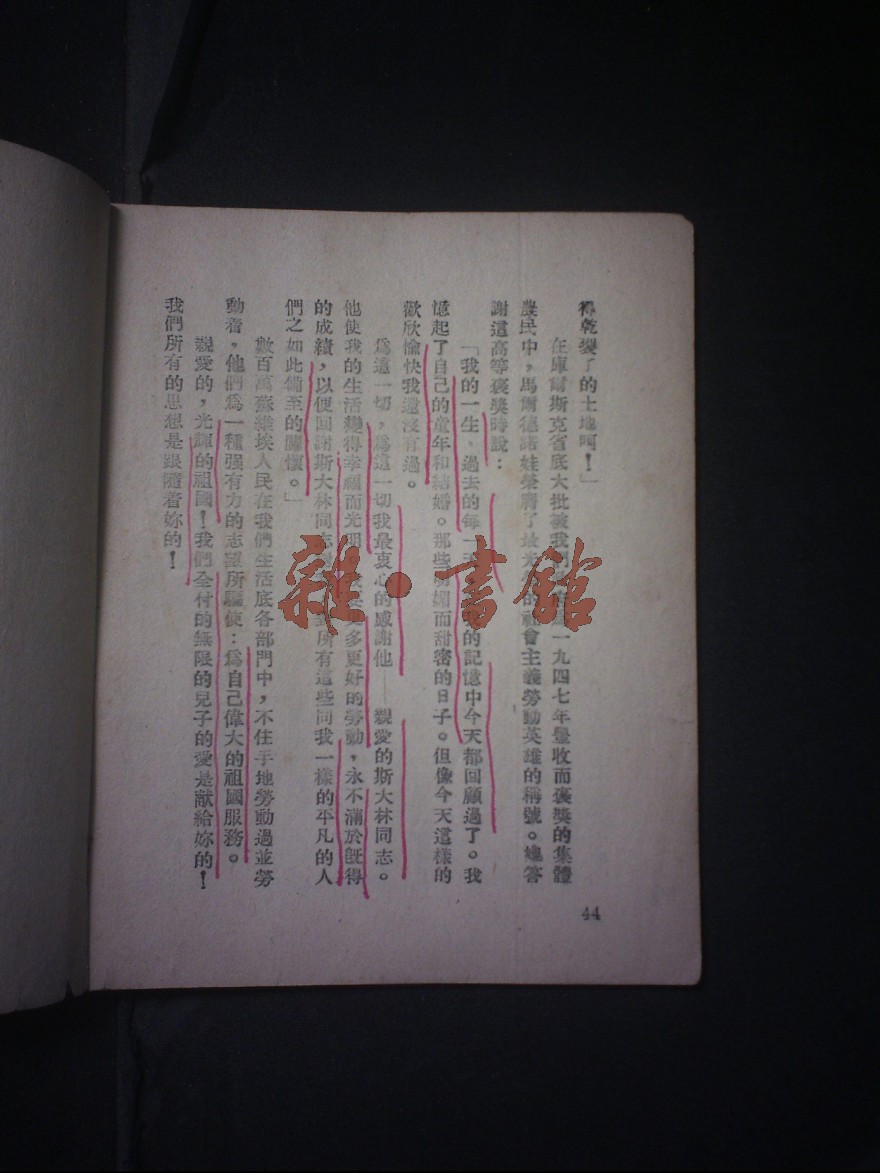 得乾裂了的土地呵！」
在庫爾斯克省底大批被我們一九四七年豐收而褒獎的集體
農民中，馬爾德諾娃榮膺了最光社會主義勞動英雄的稱號。她答
謝這高等褒獎時說：
「我的一生，過去的每一天的記憶中今天都回顧過了。我
憶起了自己的童年和結婚。那些明媚而甜密的日子。但像今天這樣的
歡欣愉快我還沒有過。
爲這一切，爲這一切我最衷心的感謝他——親愛的斯大林同志。
他使我的生活變得幸福而光明多更好的勞動，永不滿於旣得
的成績，以便回謝斯大林同志所有這些同我一樣的平凡的人
們之如此備至的關懷。」
數百萬蘇維埃人民在我們生活底各部門中，不住手地勞動過並勞
動着，他們爲一種强有力的志望所驅使：爲自己偉大的祖國服務。
親愛的，光輝的祖國！我們全付的無限的兒子的愛是献給妳的！
我們所有的思想是跟隨着妳的！
44
雜·書館